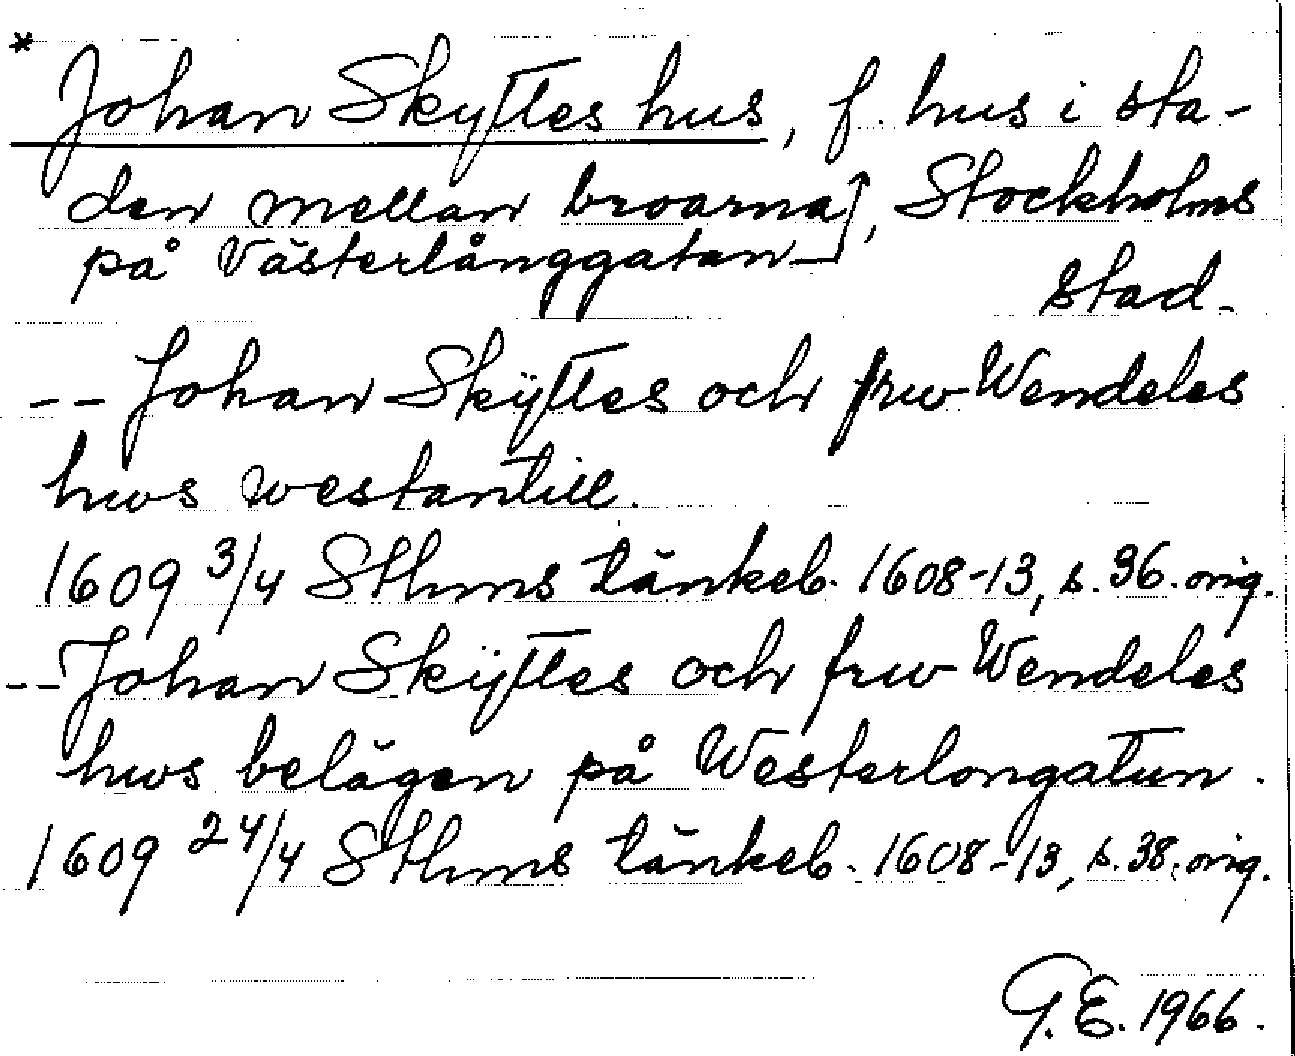 * Johan Skyttes hus, f. hus i sta-
den mellan broarna], Stockholms
på Västerlånggatan
stad.
-- Johan Skÿttes och frw Wendeles
hws westantill.
1609 3/4 Sthms tänkeb. 1608-13, s. 36. orig.
-- Johan Skÿttes och frw Wendeles
hws belägen på Westerlongatun.
1609 24/4 Sthms tänkeb. 1608-13, s. 38. orig.
G.E. 1966.